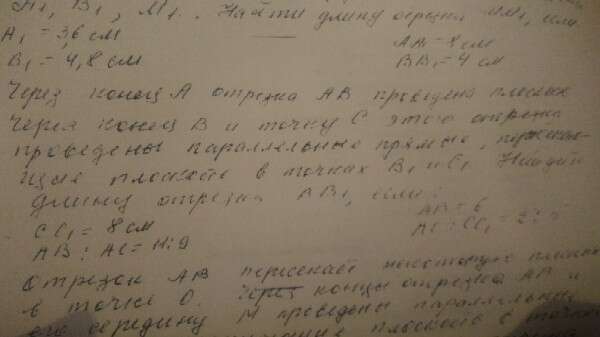 A₁, B₁, M₁. Найти длину отрезка MM₁, если
A₁ = 3,6 см
AA₁ = 8 см
B₁ = 4,8 см
BB₁ = 4 см
Через конец A отрезка AB проведена плоскость
Через конец B и точку C этого отрезка
проведены параллельные прямые, пересекаю-
щие плоскость в точках B₁ и C₁ Найдите
длину отрезка BB₁, если:
CC₁ = 8 см
AB = 6
AB : AC = 11:9
AC : CC₁ = 2:5
Отрезок AB пересекает некоторую плоскость
в точке O. Через концы отрезка AB и
его середину M проведены параллельные
плоскость в точках